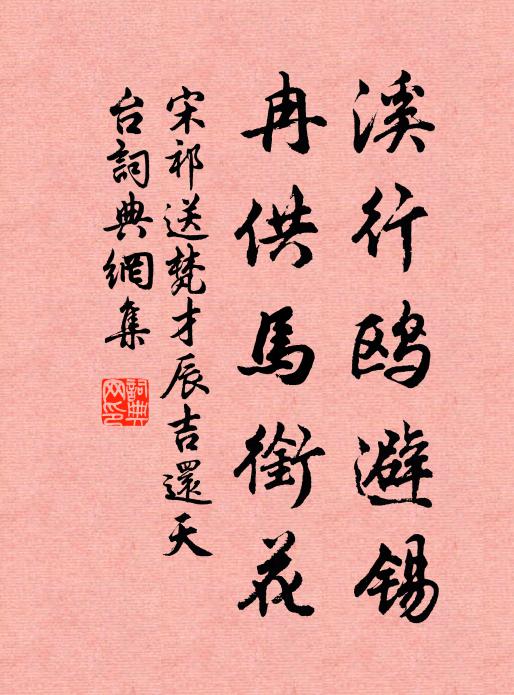 溪行鸥避锡
冉供馬銜花
宋祁送梵才辰吉還天
台詞典網集
詞典网印